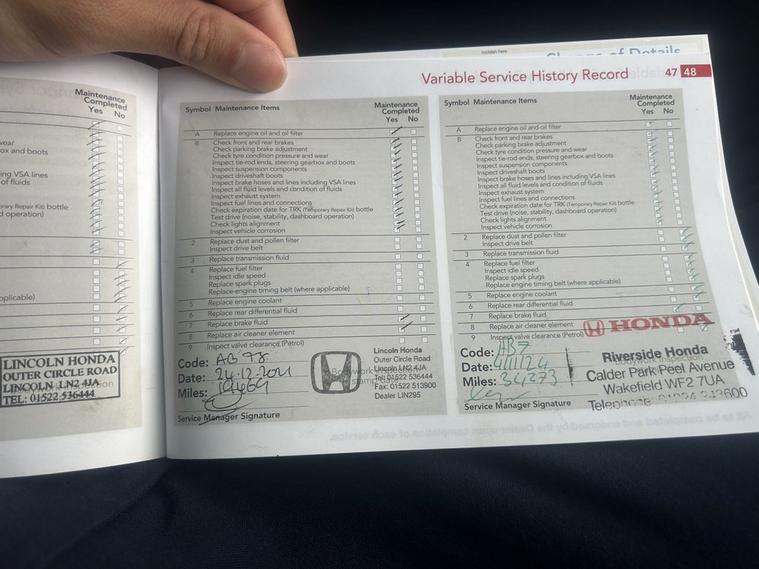 Change of Details
Variable Service History Record 47 48
Maintenance
Completed
Yes No
wear
ox and boots
ing VSA lines
of fluids
orary Repair Kit) bottle
d operation)
pplicable)
LINCOLN HONDA
OUTER CIRCLE ROAD
LINCOLN LN2 4JA
TEL: 01522 536444
Symbol Maintenance Items
Maintenance
Completed
Yes No
A Replace engine oil and oil filter
B Check front and rear brakes
Check parking brake adjustment
Check tyre condition pressure and wear
Inspect tie-rod ends, steering gearbox and boots
Inspect suspension components
Inspect driveshaft boots
Inspect brake hoses and lines including VSA lines
Inspect all fluid levels and condition of fluids
Inspect exhaust system
Inspect fuel lines and connections
Check expiration date for TRK (Temporary Repair Kit) bottle
Test drive (noise, stability, dashboard operation)
Check lights alignment
Inspect vehicle corrosion
2 Replace dust and pollen filter
Inspect drive belt
3 Replace transmission fluid
4 Replace fuel filter
Inspect idle speed
Replace spark plugs
Replace engine timing belt (where applicable)
5 Replace engine coolant
6 Replace rear differential fluid
7 Replace brake fluid
8 Replace air cleaner element
9 Inspect valve clearance (Petrol)
Code: AB 78
Date: 24.12.2021
Miles:
Service Manager Signature
Lincoln Honda
Outer Circle Road
Lincoln LN2 4JA
Tel: 01522 536444
Fax: 01522 513900
Dealer LIN295
Symbol Maintenance Items
Maintenance
Completed
Yes No
A Replace engine oil and oil filter
B Check front and rear brakes
Check parking brake adjustment
Check tyre condition pressure and wear
Inspect tie-rod ends, steering gearbox and boots
Inspect suspension components
Inspect driveshaft boots
Inspect brake hoses and lines including VSA lines
Inspect all fluid levels and condition of fluids
Inspect exhaust system
Inspect fuel lines and connections
Check expiration date for TRK (Temporary Repair Kit) bottle
Test drive (noise, stability, dashboard operation)
Check lights alignment
Inspect vehicle corrosion
2 Replace dust and pollen filter
Inspect drive belt
3 Replace transmission fluid
4 Replace fuel filter
Inspect idle speed
Replace spark plugs
Replace engine timing belt (where applicable)
5 Replace engine coolant
6 Replace rear differential fluid
7 Replace brake fluid
8 Replace air cleaner element
9 Inspect valve clearance (Petrol)
HONDA
Code: AB7
Date: 4/11/24
Miles: 34273
Service Manager Signature
Riverside Honda
Calder Park Peel Avenue
Wakefield WF2 7UA
Telephone